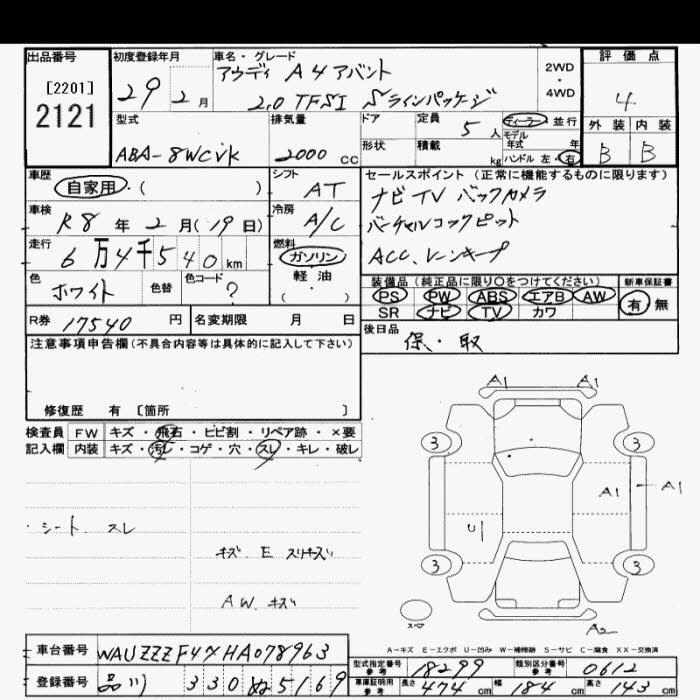 出品番号 初度登録年月 車名・グレード 評価点
[2201]
2121
29年 2月
アウディ A4アバント
2.0 TFSI Sラインパッケージ
2WD・4WD
4
型式 排気量 ドア 定員 5人 ディーラー 並行
モデル年式 年
外装 内装
ABA-8WCVK 2000cc 形状 積載 kg ハンドル 左・右
B B
車歴 シフト セールスポイント(正常に機能するものに限ります)
自家用・( ) AT ナビ TV バックカメラ
車検 冷房 バーチャルコックピット
R8年2月(19日) A/C
走行 燃料 ACC、レーンキープ
6万4千540km ガソリン
軽油
・( )
色 色替 色コード 装備品(純正品に限り○をつけてください) 新車保証書
ホワイト ? PS PW ABS エアB AW 有 無
SR ナビ TV カワ
R券 17540円 名変期限 月 日 後日品
保・取
注意事項申告欄(不具合内容等は具体的に記入して下さい)
修復歴 有 [箇所 ]
検査員 FW キズ・飛石・ヒビ割・リペア跡・×要
記入欄 内装 キズ・汚レ・コゲ・穴・スレ・キレ・破レ
A1 A1
3 3
A1 A1
U
3 3
・シート スレ
キズ E スリキズ
AW キズ
スペア
A2
A-キズ E-エクボ U-凹み W-補修跡 S-サビ C-腐食 XX-交換済
車台番号 WAUZZZF47HA078963
型式指定番号 参考 18299 類別区分番号 参考 0612
登録番号 品川 330 ぬ 5169
車庫証明用 参考 長さ 474cm 幅 184cm 高さ 143cm